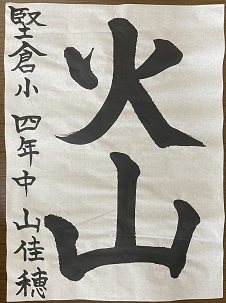 火山
堅倉小 四年 中山佳穂